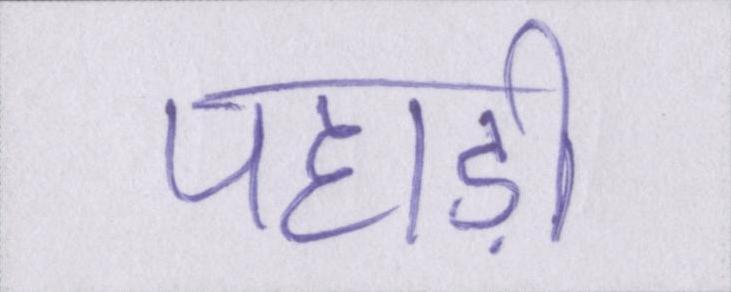 पहाड़ी